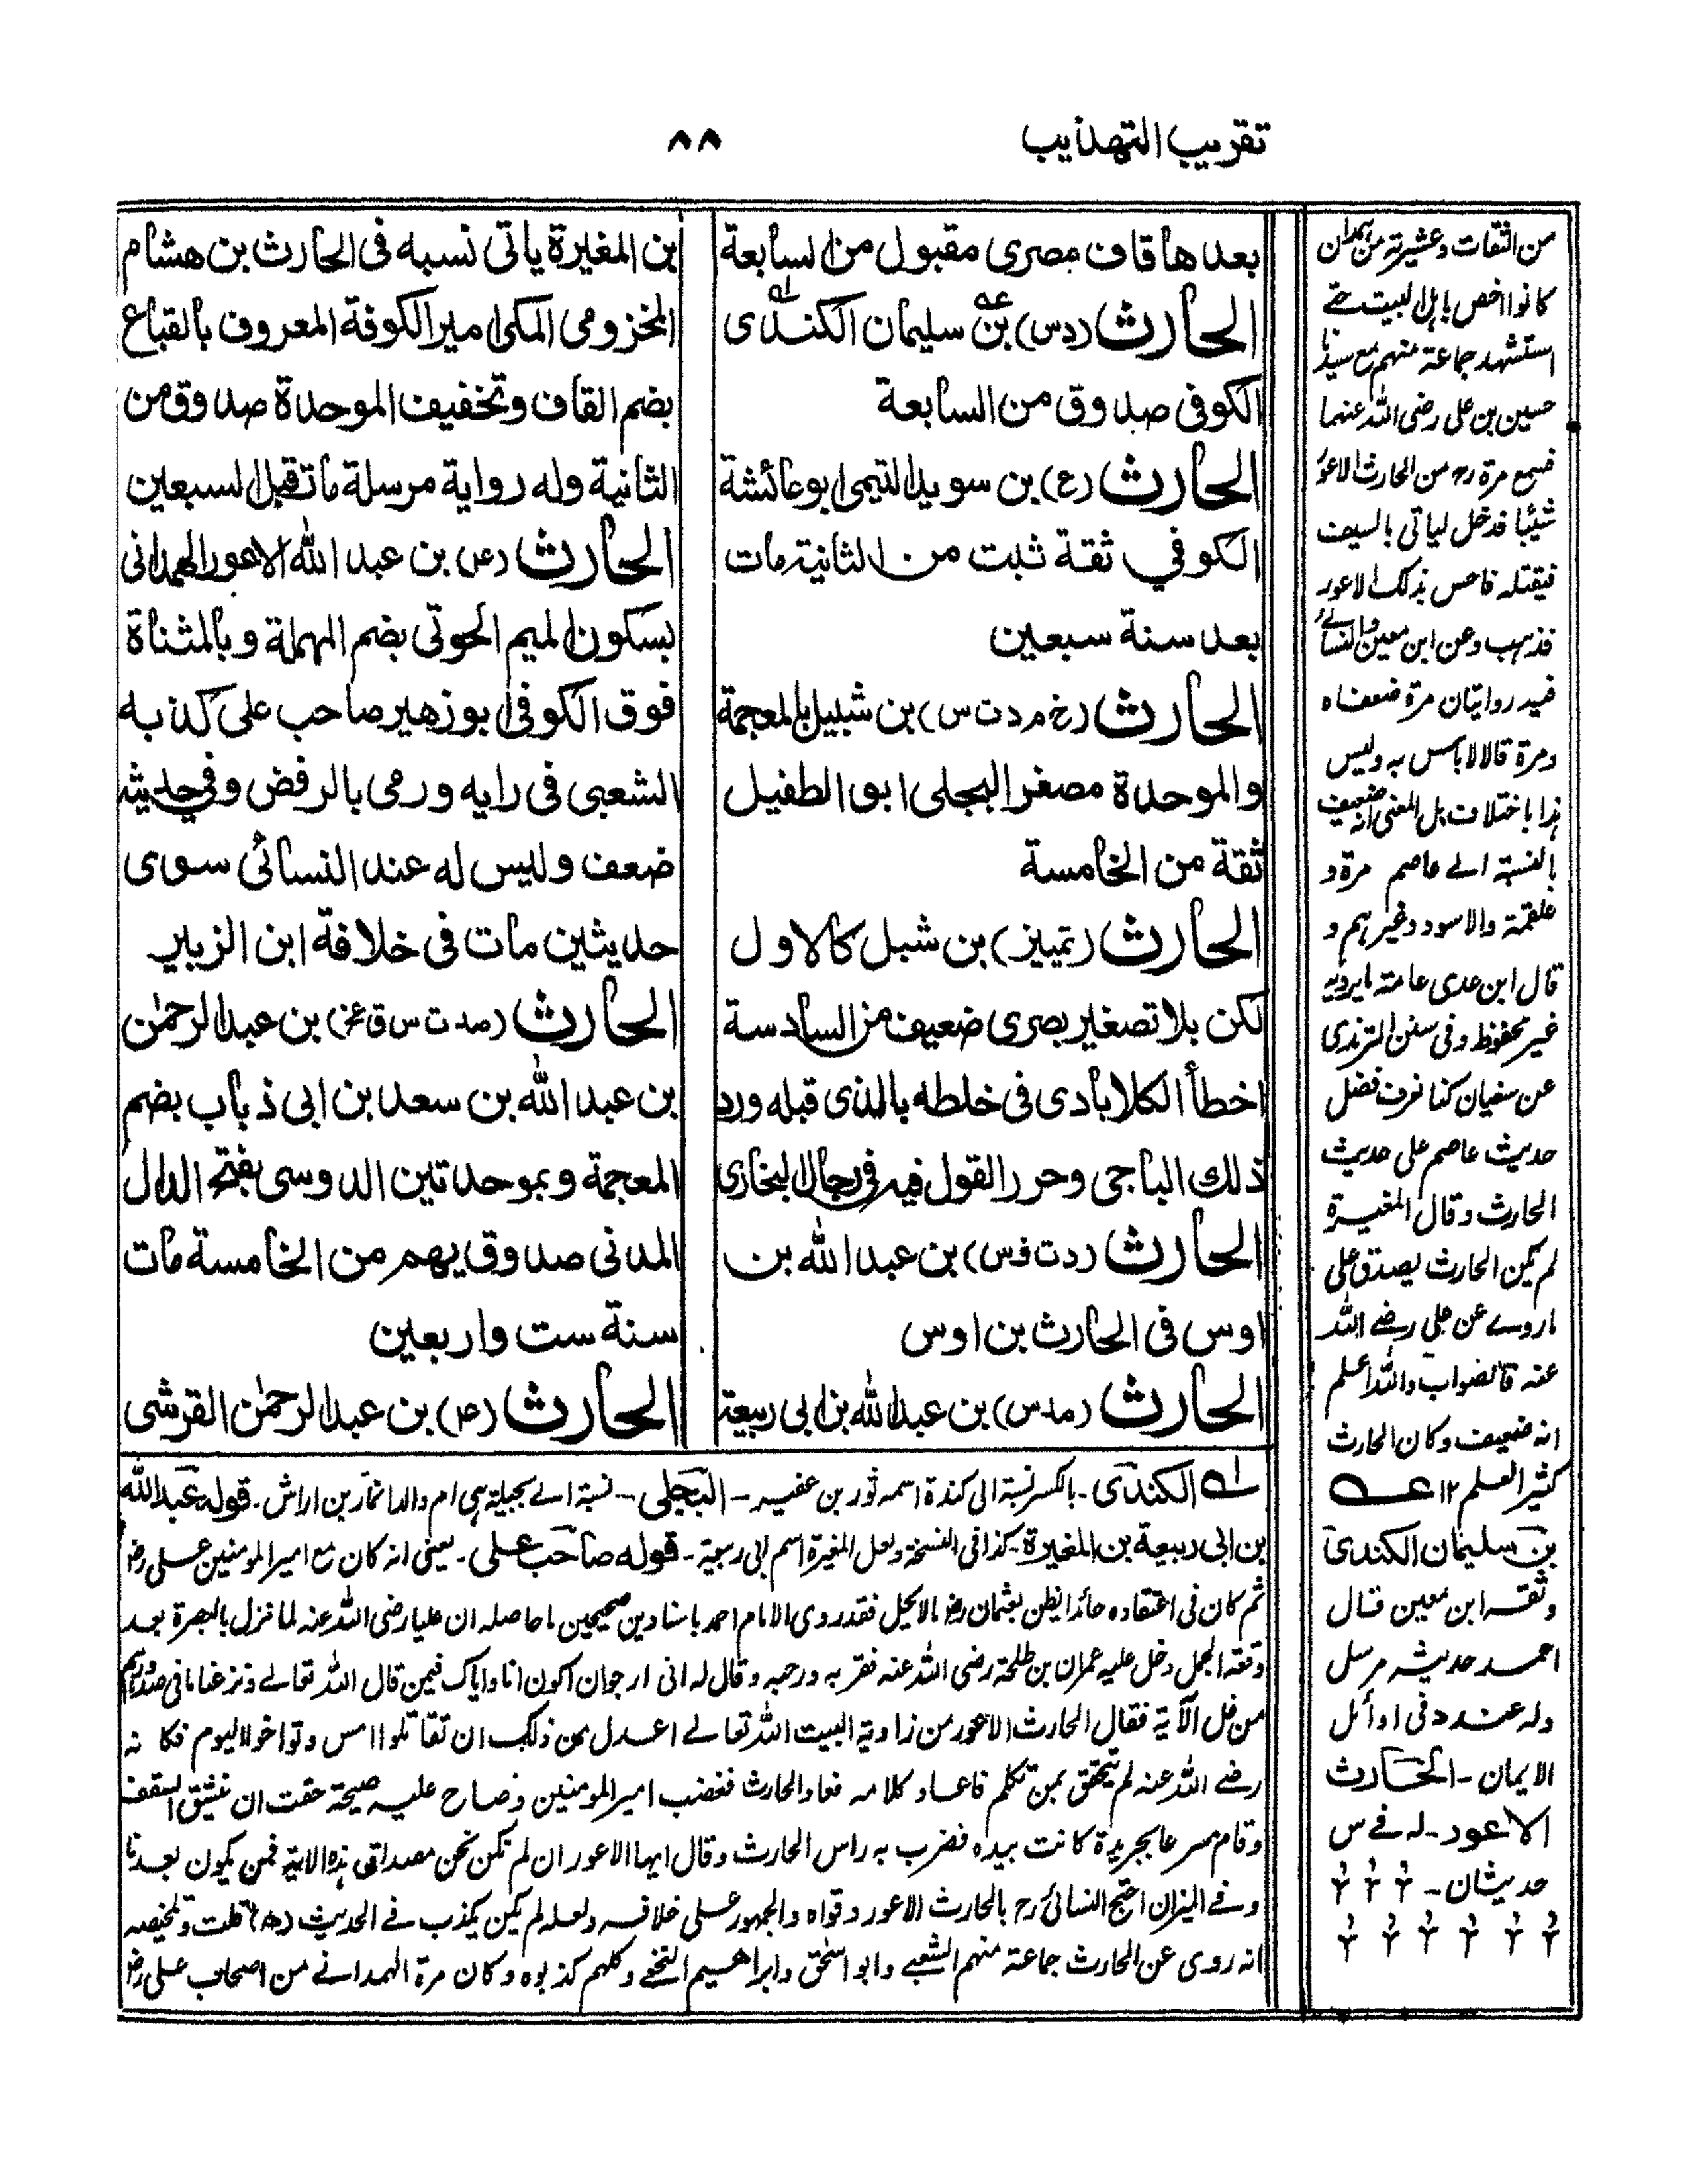 تقريب التهذيب
٨٨
بعدها قاف مصرى مقبول من السابعة
الحارث (د س) بن سليمان الكندى
الكوفى صدوق من السابعة
الحارث (ع) بن سويد التيمى ابو عائشة
الكوفي ثقة ثبت من الثانية مات
بعد سنة سبعين
الحارث (خ م د ت س) بن شبيل بالمعجمة
والموحدة مصغر البجلى ابو الطفيل
ثقة من الخامسة
الحارث (تمييز) بن شبل كالاول
لكن بلا تصغير بصرى ضعيف من السادسة
اخطأ الكلاباذى فى خلطه بالذى قبله ورد
ذلك الباجى وحرر القول فيه فى رجال البخارى
الحارث (د ت فس) بن عبد الله بن
اوس فى الحارث بن اوس
الحارث (مد س) بن عبد الله بن ابى ربيعة
بن المغيرة ياتى نسبه فى الحارث بن هشام
المخزومى المكى امير الكوفة المعروف بالقباع
بضم القاف وتخفيف الموحدة صدوق من
الثانية وله رواية مرسلة مات قبل السبعين
الحارث (عس) بن عبد الله الاعور الهمدانى
بسكون الميم الحوتى بضم المهملة وبالمثناة
فوق الكوفى ابو زهير صاحب على كذبه
الشعبى فى رايه ورمى بالرفض وفى حديثه
ضعف وليس له عند النسائى سوى
حديثين مات فى خلافة ابن الزبير
الحارث (مد ت س ق عخ) بن عبد الرحمٰن
بن عبد الله بن سعد بن ابى ذباب بضم
المعجمة وبموحدتين الدوسى بفتح الدال
المدنى صدوق يهم من الخامسة مات
سنة ست واربعين
الحارث (عہ) بن عبد الرحمٰن القرشى
لـه الكندى ـ بالكسر نسبة الى كندة اسمه ثور بن عفير ـ البجلى ـ نسبة الے بجيلة هى ام ولد انمار بن اراش ـ قوله عبد الله
بن ابى ربيعة بن المغيرة ـ كذا فى النسخة ولعل المغيرة اسم ابى ربيعة ـ قوله صاحب على ـ يعنى انه كان مع امير المومنين على رض
ثم كان فى اعتقاده حائدا يظن بعثمان رض مالا يحل فقد روى الامام احمد باسنادين صحيحين ما حاصله ان عليا رضى الله عنه لما نزل بالبصرة بعد
وقعة الجمل دخل عليه عمران بن طلحة رضى الله عنه فقربه ورحبه وقال له انى ارجو ان اكون انا واياك فيمن قال الله تعالے ونزعنا ما فى صدورهم
من غل الآية فقال الحارث الاعور من زاوية البيت الله تعالے اعدل من ذلك ان تقاتلوا امس وتواخوا اليوم فكانه
رضے الله عنه لم يتحقق بمن تكلم فاعاد كلامه فعاد الحارث فغضب امير المومنين وصاح عليه صيحة خفت ان ينشق السقف
وقام مسرعا بجريدة كانت بيده فضرب به راس الحارث وقال ايها الاعور ان لم نكن نحن مصداقى هذه الاية فمن يكون بعدنا
وفے الميزان احتج النسائى رح بالحارث الاعور وقواه والجمهور على خلافه ولعله لم يكن يكذب فے الحديث قلت وتلخيصه
انه روى عن الحارث جماعة منهم الشعبے وابو اسحٰق وابراهيم النخعے وكلهم كذبوه وكان مرة الهمدانے من اصحاب على رض
من الثقات وعشيرته من همدان
كانوا اخص باهل البيت حتے
استشهد جماعة منهم مع سيدنا
حسين بن على رضى الله عنهما
فسمع مرة رح من الحارث الاعور
شيئا فدخل لياتى بالسيف
فيقتله فاحس بذلك الاعور
فذهب وعن ابن معين والنسائے
فيه روايتان مرة ضعفاه
ومرة قالا لاباس به وليس
هذا باختلاف بل المعنى انه ضعيف
بالنسبة الے عاصم مرة و
علقمة والاسود وغيرهم و
قال ابن عدى عامة ما يرويه
غير محفوظ وفى سنن الترمذى
عن سفيان كنا نعرف فضل
حديث عاصم على حديث
الحارث وقال المغيرة
لم يكن الحارث يصدق على
ما روے عن على رضے الله
عنه فالصواب والله اعلم
انه ضعيف وكان الحارث
كثير العلم ١٢ عـه
بن سليمان الكندى
وثقه ابن معين قال
احمد حديثه مرسل
وله عند د فى اوائل
الايمان ـ الحارث
الاعور ـ له فے س
حديثان ـ